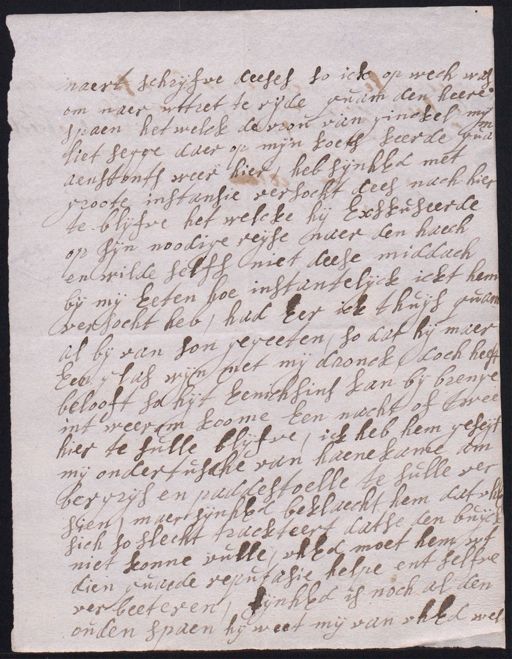 naert schrijfve deeses so ick op wech was
om naer uttret te rijde quam den heere
spaen het welck de vrou van ginckel mij
liet segge daer op mijn koets keerde quam
aenstonts weer hier, heb sijnhed met
groote instansie versocht dees nach hier
te blijfve het welcke hij Exskuseerde
op sijn noodige reijse naer den haech
en wilde selfs niet deese middach
bij mij Eeten hoe instantelijck ickt hem
versocht heb, had Eer ick thuijs quam
al bij van son gegeeten, so dat hij maer
Een glas wijn met mij dronck, doch heeft
belooft so hijt Eenichsins kan bij brenge
int weerom koome Een nacht of twee
hier te sulle blijfve, ick heb hem geseijt
mij ondertusche van haenekame om
bergrijs en paddestoelle te sulle ver
sien, maer sijnhed beklaecht hem dat uhed
sich so slecht trackteert datse den buijck
niet konne vulle, uhed moet hem uyt
dien quade reputasie helpe ent selfve
verbeeteren, sijnhed is noch al den
ouden spaen hij weet mij van uhed wel